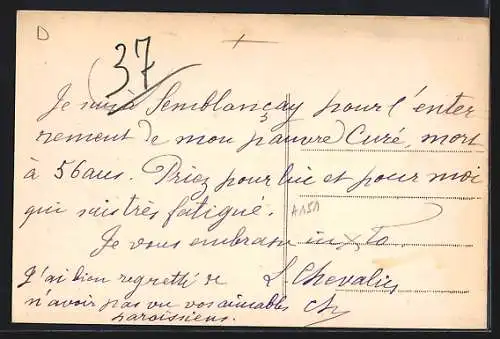 D
37
Je suis à Semblançay pour l'enter
rement de mon pauvre Curé, mort
à 56 ans. Priez pour lui et pour moi
qui suis très fatigué.
A151
Je vous embrasse in Xto.
L Chevalier
J'ai bien regretté de
n'avoir pas vu vos aimables
paroissiens.